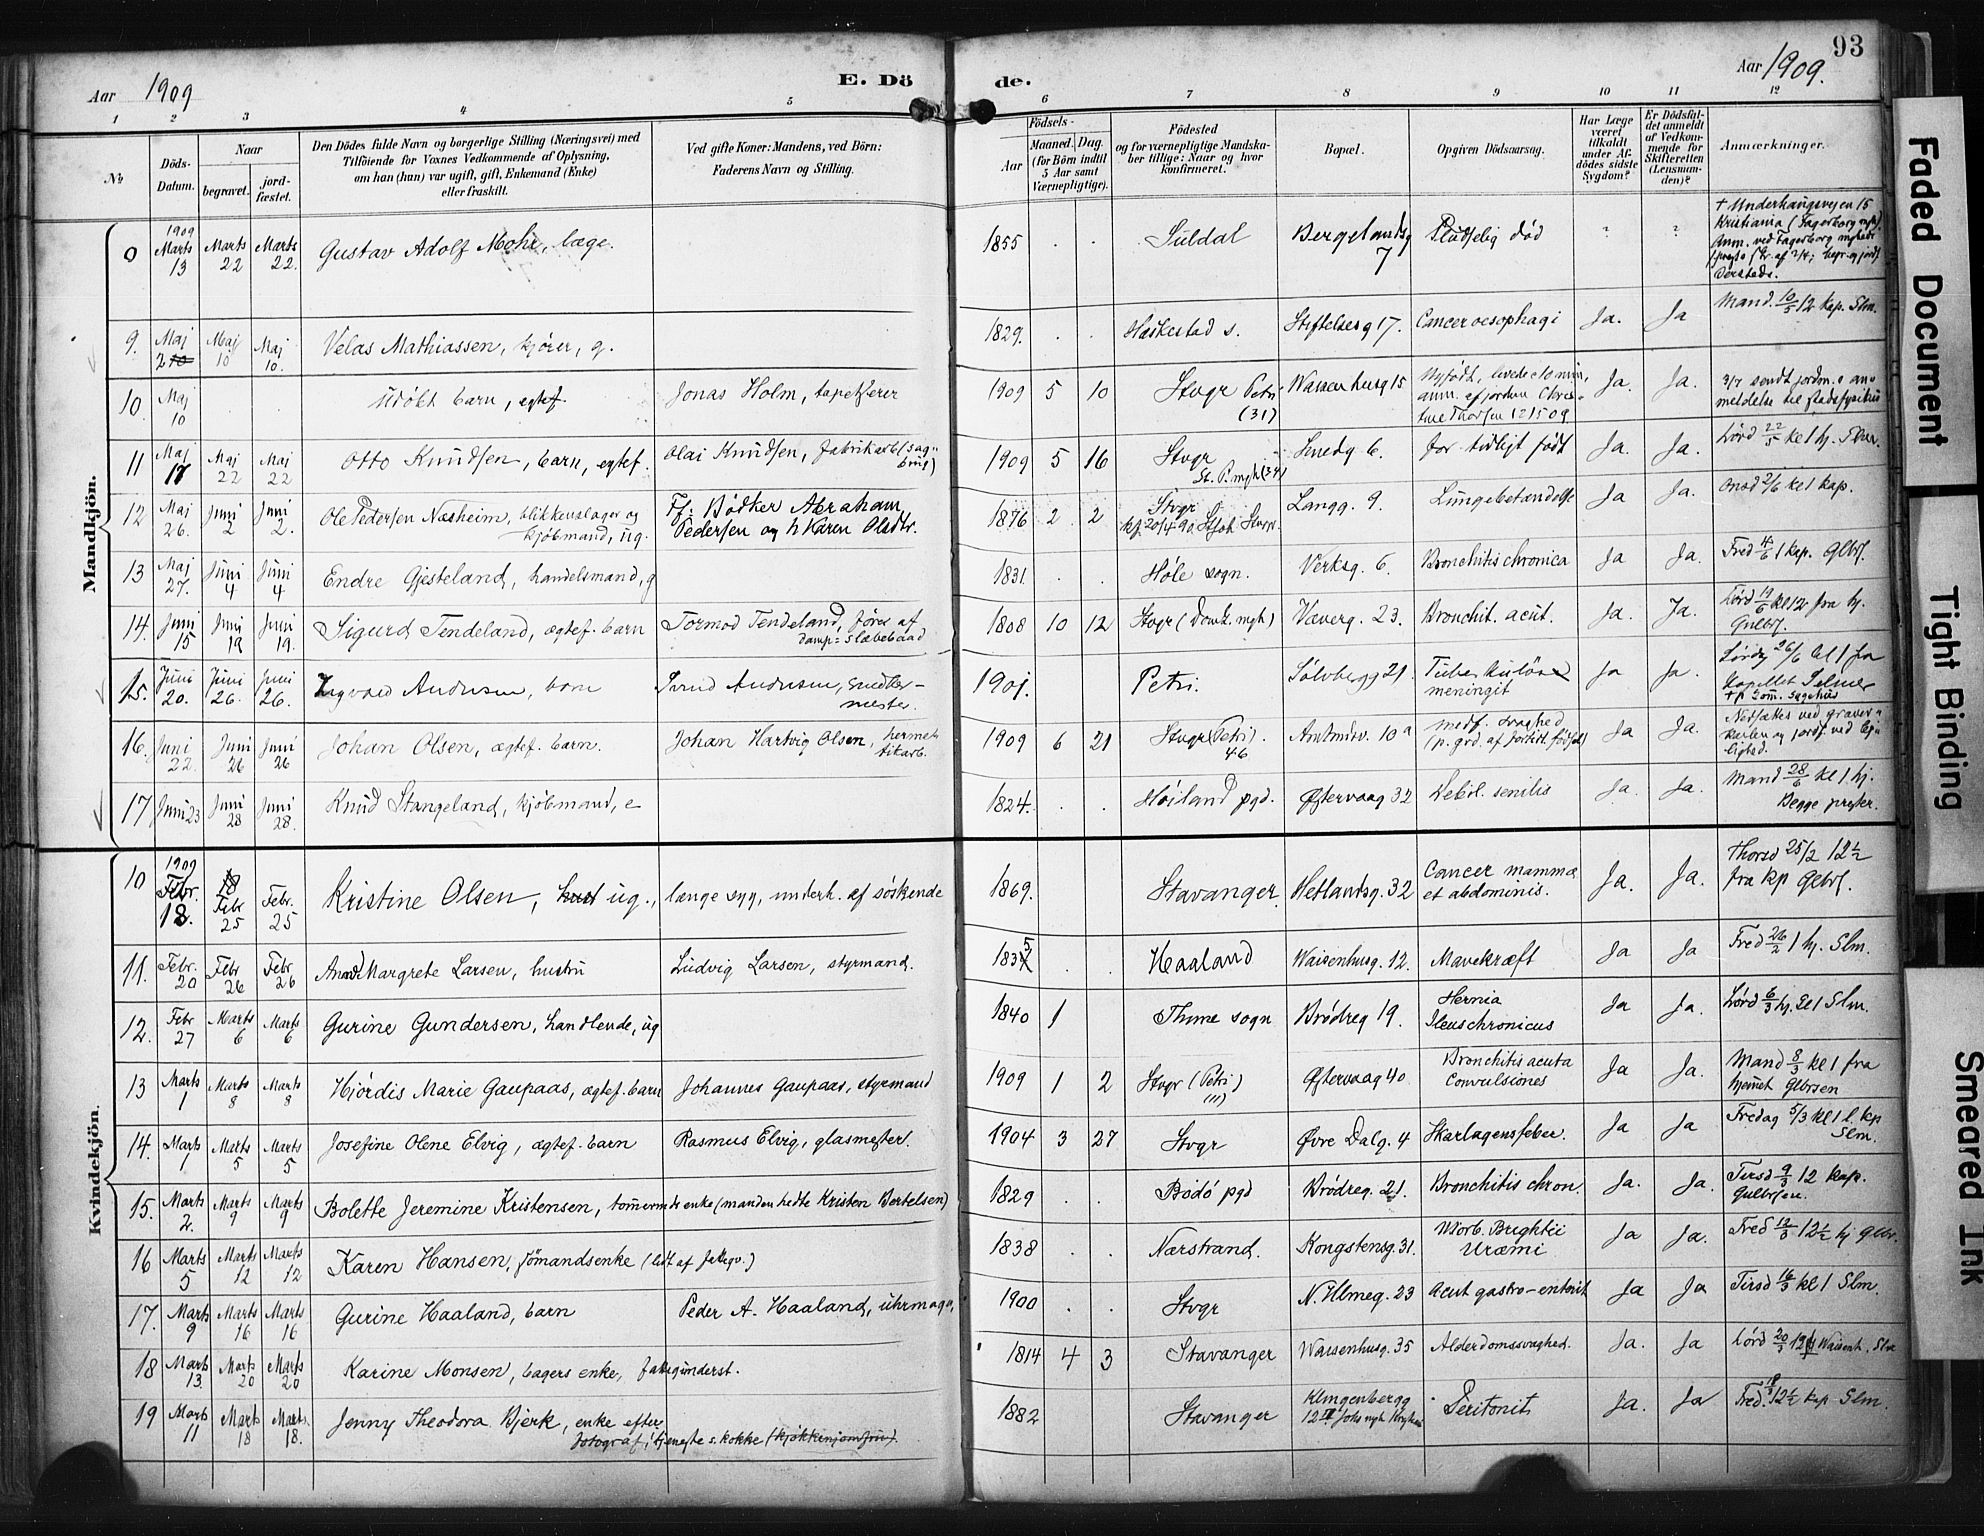 Aar 1909
E. Dö
de.
Aar 1909.
93
1 2 3 4 5 6 7 8 9 10 11 12
No
Döds-Datum.
Naar
begravet.
jordfæstet.
Den Dödes fulde Navn og borgerlige Stilling (Næringsvei) med
Tilföiende for Voxnes Vedkommende af Oplysning,
om han (hun) var ugift, gift, Enkemand (Enke)
eller fraskilt.
Ved gifte Koner: Mandens, ved Börn:
Faderens Navn og Stilling.
Födsels-
Aar
Maaned. Dag.
(for Börn indtil
5 Aar samt
Værnepligtige).
Födested
og for værnepligtige Mandska-
ber tillige: Naar og hvor
konfirmeret.
Bopæl.
Opgiven Dödsaarsag.
Har Læge
været
tilkaldt
under Af-
dödes sidste
Sygdom?
Er Dödsfal-
det anmeldt
af Vedkom-
mende for
Skifteretten
(Lensman-
den)?
Anmærkninger.
Mandkjön.
9 1909 Marts 13 Marts 22 Marts 22. Gustav Adolf Mohr, læge. 1855 . . Suldal Bergelandsg 7 Pludselig död ? ? † Underhaugsvejen 15 Kristiania
9. Maj 2 Maj 10 Maj 10. Velas Mathiassen, kjører, g. 1829. . . Heskestad s. Stiftelsesg 17. Cancer oesophagi Ja. Ja Mand. 10/5 12 kap. Slm.
10 Maj 10 . . Udöbt barn, egtef. Jonas Holm, tapetserer 1909 5 10 Stvgr Petri (31) Waisenhusg 15 Nyfödt, levede 10 min, Ja. Ja.
11 Maj 17 Maj 22 Maj 22 Otto Knudsen, barn, egtef. Olai Knudsen, fabrikarb 1909 5 16 Stvgr St. P. mgh (34) Smedg 6. for tidligt födt Ja. Ja. Lörd 22/5 kl 1 hj.
12 Maj 26. Juni 2 Juni 2. Ole Pedersen Næsheim, blikkenslager og kjöbmand, ug. Ff: Bödker Abraham Pedersen og h Karen Olsdtr. 1876 2 2 Stvgr kf. 20/4 90 Langg. 9. Lungebetændelse Ja Ja. Onsd 2/6 kl 1 kap.
13 Maj 27. Juni 4 Juni 4 Endre Gjesteland, handelsmand, g 1831. . . Höle sogn. Verksg. 6. Bronchitis chronica Ja Ja. Fred 4/6 1 kap. Glbrs.
14. Juni 15 Juni 19 Juni 19. Sigurd Tendeland, ægtef. barn Tormod Tendeland, förer af damp-slæbebaad 1808 10 12 Stvgr (Domk. mgh) Væverg. 23. Bronchit. acut. Ja. Ja. Lörd 19/6 kl 12 fra hj. Gulbrs.
15. Juni 20. Juni 26. Juni 26. Ingvald Andersen, barn Andersen, snedkermester. 1901. Petri. Sölvbergg 21. Tuberkulöse meningit Ja Ja. Lördg 26/6 kl 1 fra kapellet Selmer
16. Juni 22. Juni 26 Juni 26 Johan Olsen, ægtef. barn. Johan Hartvig Olsen, hermetikarb. 1909 6 21 Stvgr (Petri). 46 10 a medf. svaghed Ja Ja.
17 Juni 23 Juni 28 Juni 28. Knud Stangeland, kjöbmand, e 1824. . . Höiland pgd. Østervaag 32 Debil. senilis Ja. Ja. Mand 28/6 kl 1 hj. Begge prester.
Kvindekjön.
10 1909 Febr. 18. Febr 25 Febr. 25 Kristine Olsen, ug., længe syg, underh. af söskende 1869. Stavanger Hetlandsg. 32 Cancer mammæ et abdominis. Ja. Ja. Thorsd 25/2 12½ fra kp Glbrs.
11. Febr. 20 Febr 26 Febr 26 Anne Margrete Larsen, hustru Ludvig Larsen, styrmand. 1835 . . Haaland Waisenhusg. 12. Mavekræft Ja Ja Fred 26/2 1 hj. Slm.
12. Febr 27 Marts 6 Marts 6 Gurine Gundersen, handlende, ug 1840 1 Thime sogn Brödreg 19. Hernia Ileus chronicus Ja Ja. Lörd 6/3 hj. kl 1 Slm.
13 Marts 1 Marts 8 Marts 8 Hjördis Marie Gaupaas, ægtef. barn Johannes Gaupaas, styrmand 1909 1 2 Stvgr (Petri) (11) Østervaag 40 Bronchitis acuta Convulsiones Ja Ja. Mand 8/3 kl 1 fra hjemmet Glbrsen
14. Marts 1 Marts 5 Marts 5 Josefine Olene Elvig, ægtef. barn Rasmus Elvig, glasmester. 1904 3 27 Stvgr Øvre Dalg. 4 Skarlagensfeber. Ja Ja Fredag 5/3 kl 1 l. kp Slm.
15. Marts 2. Marts 9 Marts 9 Bolette Jeremine Kristensen, tömmermds enke (manden hedte Kristen Bertelsen) 1829 . . Bodö pgd Brödreg. 21. Bronchitis chron. Ja. Ja. Tirsd 9/3 12 kap. Gulbrsen.
16 Marts 5 Marts 12 Marts 12 Karen Hansen, sömandsenke (ledt af fattigv.) 1838 . . Nærstrand. Kongstensg. 31. Morb. Brightii Uræmi Ja Ja. Fred 12/3 12½ hj Glbr.
17. Marts 9 Marts 16 Marts 16 Gurine Haaland, barn Peder A. Haaland, uhrmager 1900 . . Stvgr N. Holmeg. 23 Acut gastro-enterit Ja Ja Tirsd 16/3 kl 1 Slm.
18 Marts 13. Marts 20 Marts 20 Karine Monsen, bagers enke, fattigunderst. 1814 4 3 Stavanger Waisenhusg. 35 Alderdomssvaghed. Ja. Ja Lörd 20/3 Waisenh. Slm
19 Marts 11 Marts 18 Marts 18. Jenny Theodora Bjerk, enke efter fotograf, tjeneste s. kokke (kjökkenjomfru) 1882 Stavanger Klingenbergg 12 Peritonit Ja. Ja Fred. 18/3 12½ kap Slm.
Faded Document
Tight Binding
Smeared Ink